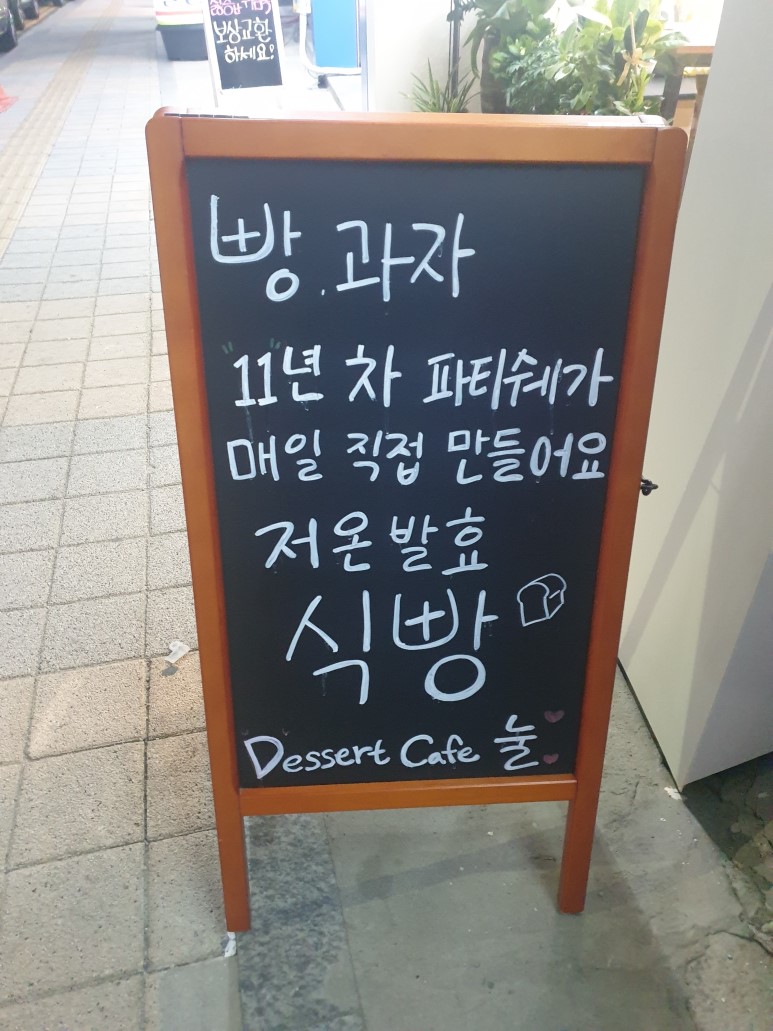 보상교환
하세요!
빵.과자
"11"년 차 파티쉐가
매일 직접 만들어요
저온발효
식빵
Dessert Cafe 눌